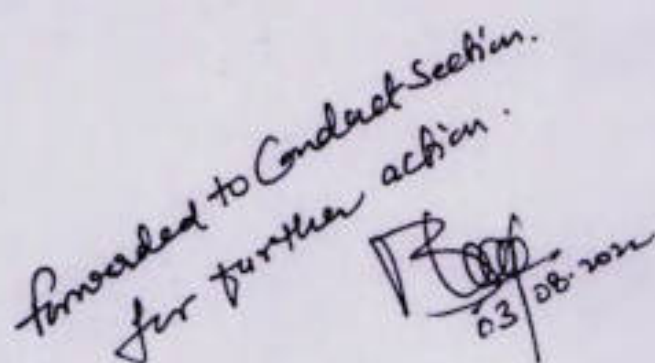 forwarded to Conduct Section.
for further action.
03.08.2022